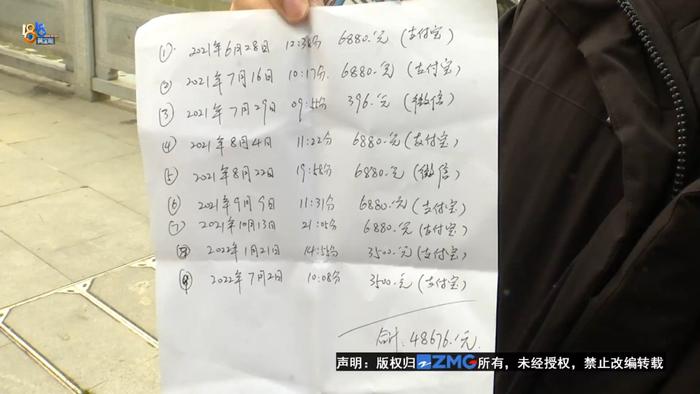 1818
黄金眼
① 2021年6月28日 12:38分 6880.元 (支付宝)
② 2021年7月16日 10:17分 6880.元 (支付宝)
③ 2021年7月29日 09:54分 396.元 (微信)
④ 2021年8月4日 11:22分 6880.元 (支付宝)
⑤ 2021年8月22日 19:58分 6880.元 (微信)
⑥ 2021年9月9日 11:31分 6880.元 (支付宝)
⑦ 2021年10月13日 21:05分 6880.元 (支付宝)
⑧ 2022年1月21日 14:55分 3500.元 (支付宝)
⑨ 2022年7月2日 10:08分 3500.元 (支付宝)
合计: 48676.元
声明：版权归ZMG所有，未经授权，禁止改编转载